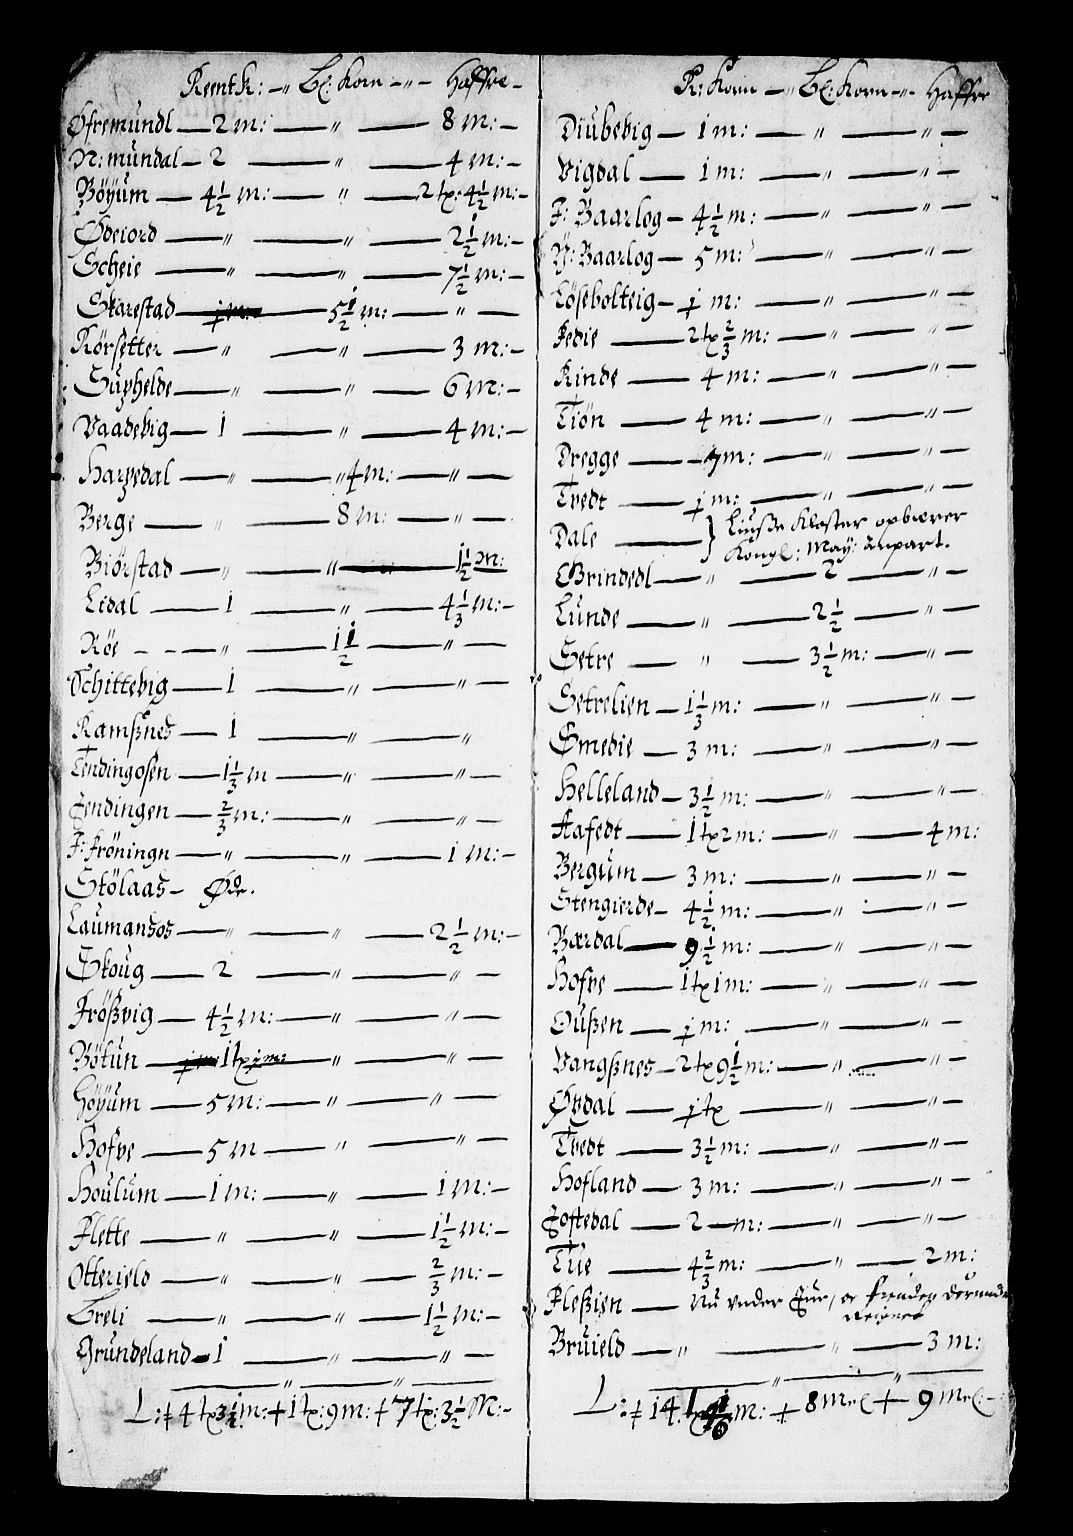 Reentk: — „ Bl: Korn — „ — Haffre —
Øfremundl — 2 m: — „ — 8 m: —
N: mundal — 2 — „ — 4 m: —
Böÿum — 4 1/2 m: — „ — 2 tx: 4 1/2 m: —
Ødeiord — „ — „ — 2 1/2 m: —
Scheie — „ — „ — 7 1/2 m: —
Skarestad — j m: — 5 1/2 m: — „ —
Rörsetter — „ — „ — 3 m: —
Suphelde — „ — „ — 6 m: —
Vaadevig — 1 — „ — 4 m: —
Harpedal — „ — „ 4 m: — „ —
Berge — „ — 8 m: — „ —
Biörstad — „ — „ — 1 1/2 m:
Lidal — 1 — „ — 4 1/3 m: —
Röe — „ — 1 1/2 — „ —
Schittevig — 1 — „ — „ —
Ramßnes — 1 — „ — „
Tendingosen — 1 1/3 m — „ — „ —
Jendingen — 2/3 m: — „ — „ —
J: fröningn — „ — „ — 1 m: —
Stölaas — Øde.
Laumansos — „ — „ — 2 1/2 m: —
Skoug — 2 — „ — „ —
Frößvig — 4 1/2 m: — „ — „ —
Bötun — j m: 1 tx j m: — „ — „ —
Höÿum — 5 m: — „ — „ —
Hofve — 5 m — „ — „ —
Houlum — 1 m: — „ — 1 m: —
Flette — „ — „ — 1 1/2 m: —
Otterield — „ — „ — 2/3 m: —
Greli — „ — „ — 1 1/2 m: —
Grundeland — 1 — „ — „ —
— „ — „ —
L: ‡ 4 tx 3 1/2 m: + 1 tx: 9 m: + 7 tx: 3 1/2 m: —
R: Korn — „ Bl: Korn — „ — Haffre
Diubevig — 1 m: — „ — „ —
Vigdal — 1 m: — „ — „ —
J: Baarlog — 4 1/2 m: — „ — „ —
Y: Baarlog — 5 m: — „ — „ —
Lösebolteig — j m: — „ — „ —
Fedie — 2 tx 2/3 m: — „ — „ —
Rinde — 4 m: — „ — „ —
Tiön — 4 m: — „ — „ —
Dregge — 7 m: — „ — „ —
Tvedt — j m: — „ — „ —
Dale — } Liuße Kloster opbærer
Kongl: May: anpart.
Grindedl — „ — 2 — „ —
Lunde — „ — 2 1/2 — „ —
Setre — „ — 3 1/2 m: — „ —
Setrelien — 1 1/3 m: — „ — „ —
Smedie — 3 m: — „ — „ —
Helleland — 3 1/2 m: — „ — „ —
Aafedt — 1 tx 2 m: — „ — 4 m:
Bergum — 3 m: — „ — „ —
Stengierde — 4 1/2 m: — „ — „ —
Bærdal — 9 1/2 m: — „ — „ —
Hofve — 1 tx 1 m: — „ — „ —
Oußen — j m: — „ — „ —
Vangßnes — 2 tx 9 1/2 m: — „ — „ —
Øvdal — j tx — „ — „ —
Tvedt — 3 1/2 m: — „ — „ —
Hofland — 3 m: — „ — „ —
Jostedal — 2 — m: — „ — „ —
Tue — 4 2/3 m: — „ — 2 m:
Fleßien — Nu vnder
Bruield — „ — „ — 3 m:
— „ — „ —
L: ‡ 14 tx m: + 8 mrl + 9 mrl: —